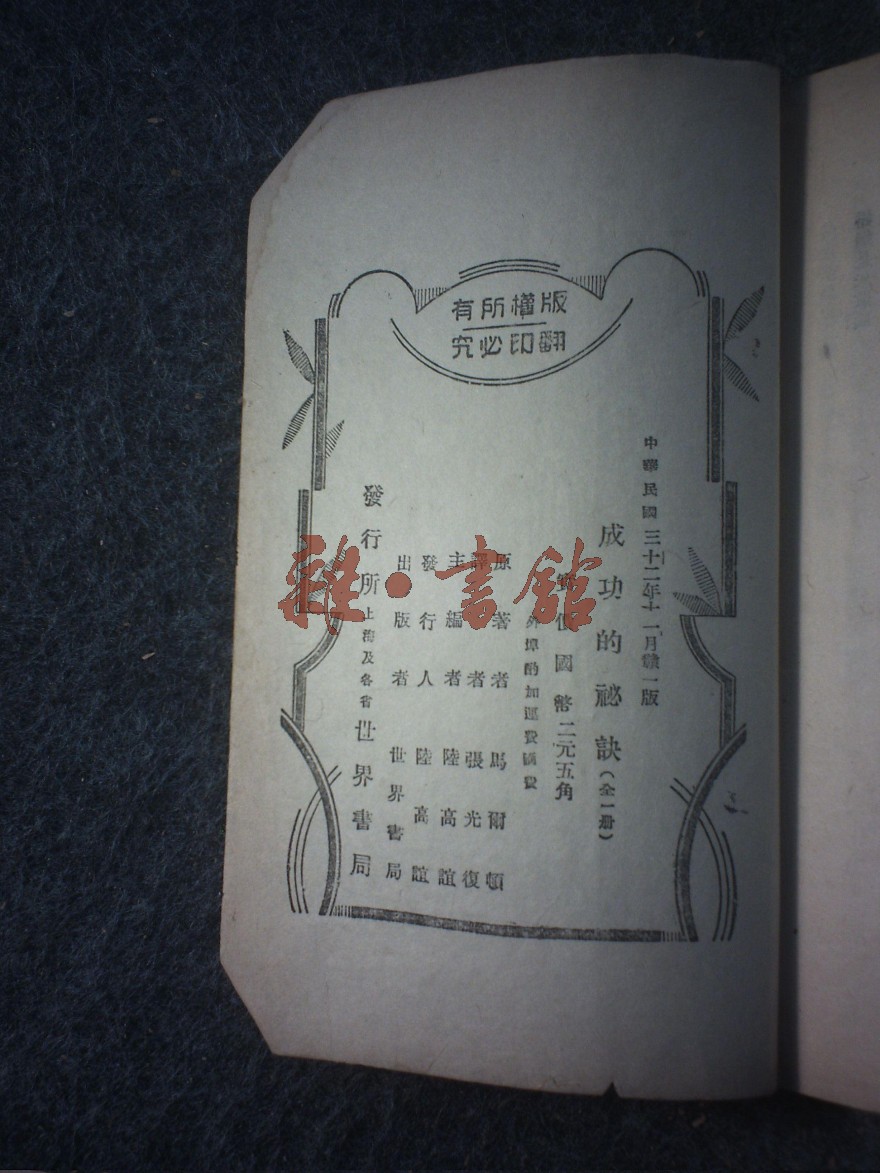 版權所有
翻印必究
中華民國三十二年十一月贛一版
成功的祕訣(全一册)
實價國幣二元五角
外埠酌加運費匯費
原著者 馬爾頓
譯者 張光復
主編者 陸高誼
發行人 陸高誼
出版者 世界書局
發行所 上海及各省 世界書局
雜·書館